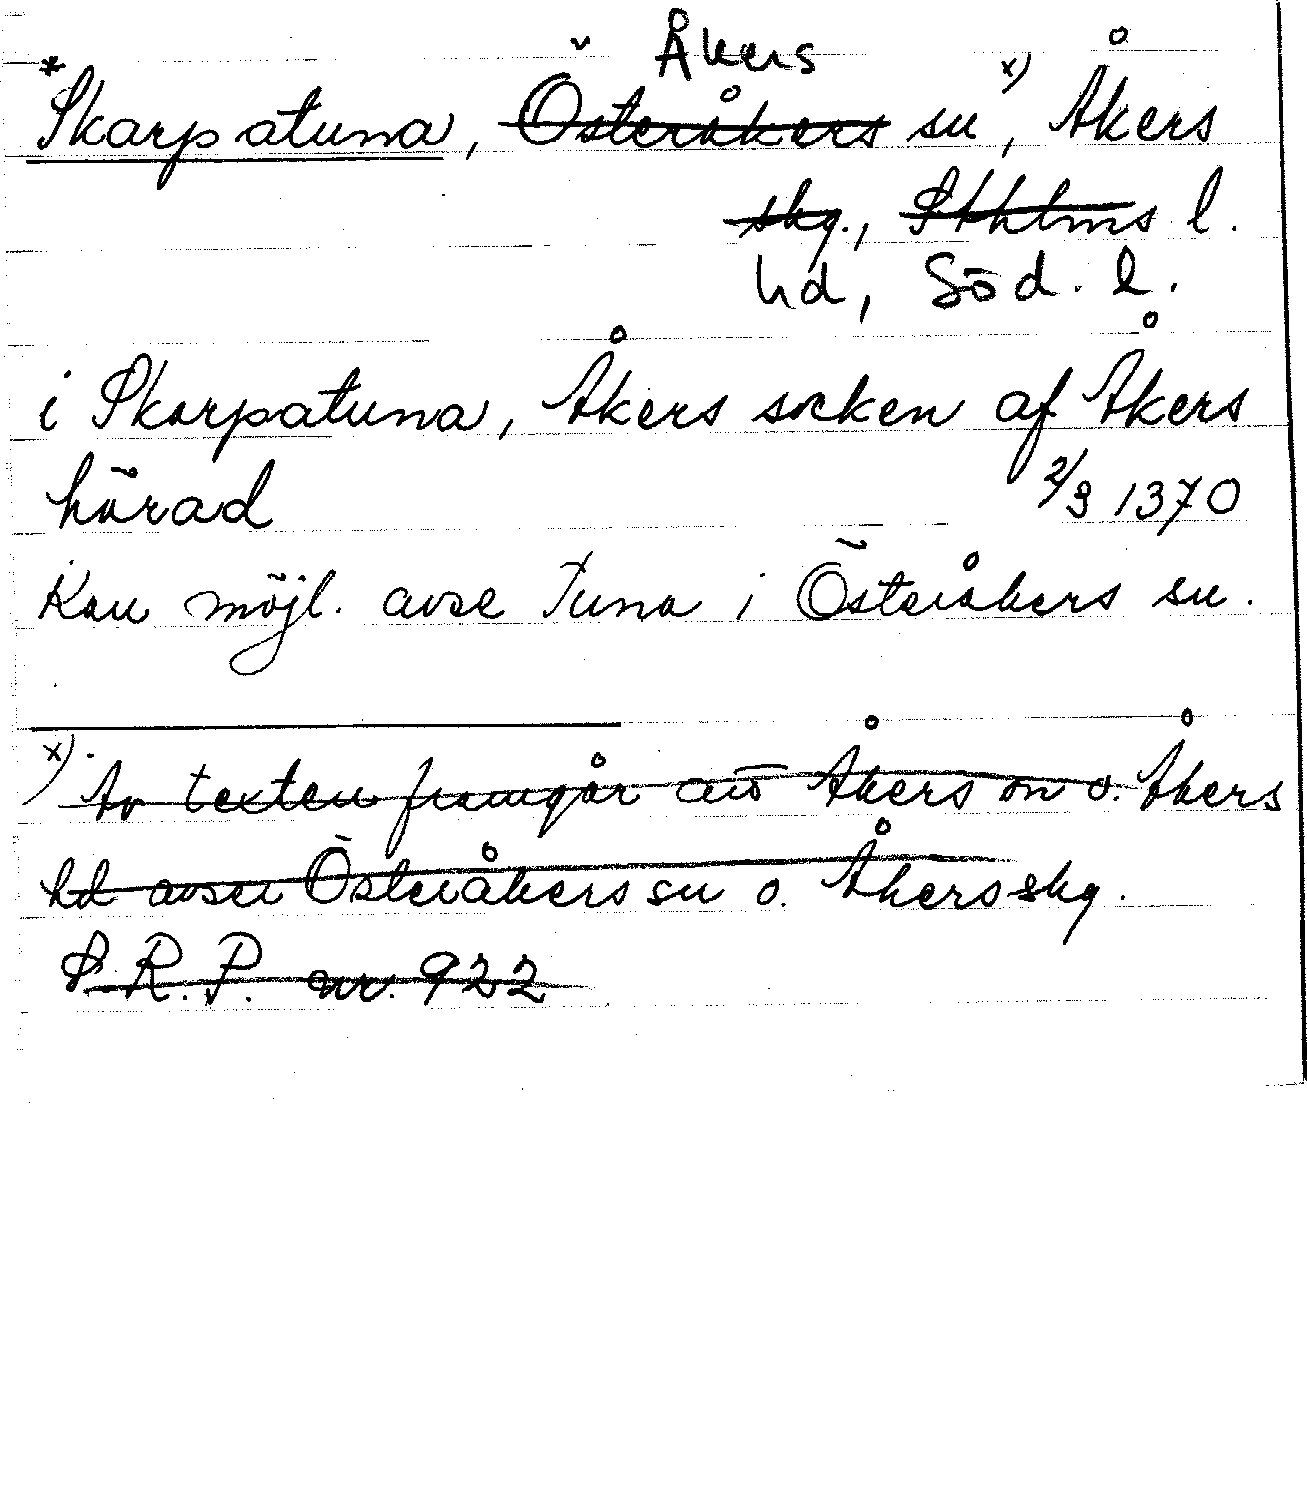 Åkers
*Skarpatuna, Österåkers sn x), Åkers
skg., Sthlms l.
hd, Söd. l.
i Skarpatuna, Åkers socken af Åkers
härad 2/3 1370
Kan möjl. avse Tuna i Österåkers sn.
x) Av texten framgår att Åkers sn o. Åkers
hd avser Österåkers sn o. Åkers skg.
S.R.P. nr. 922